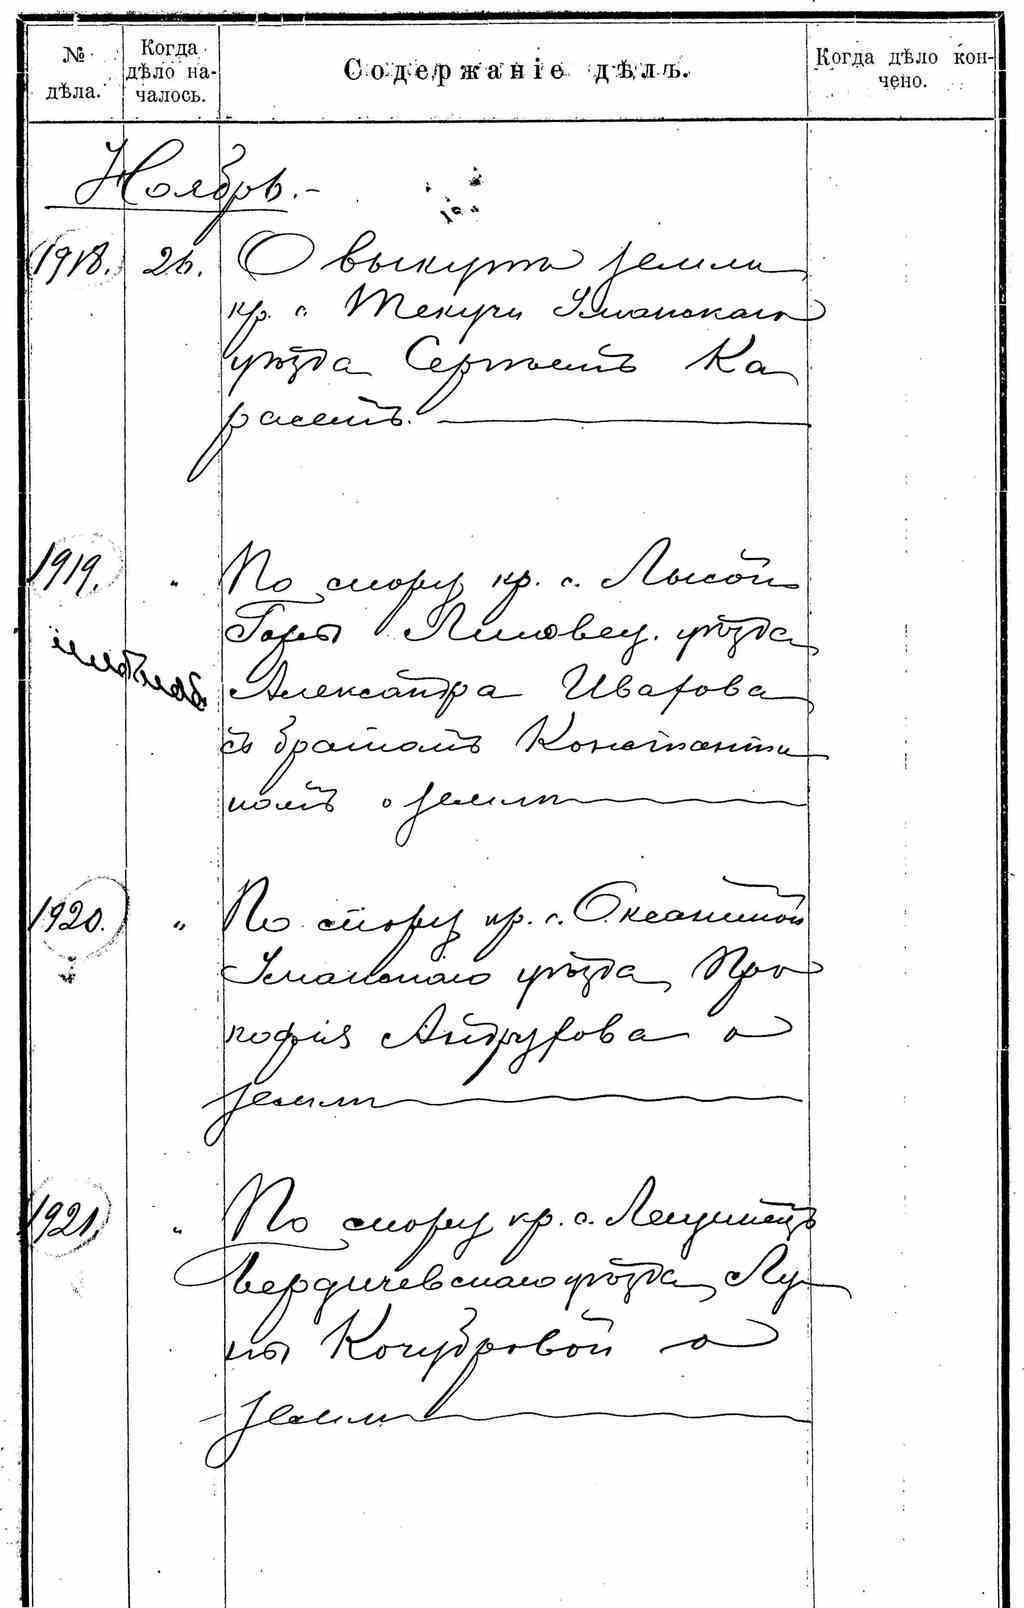 № дѣла.
Когда дѣло началось.
Содержаніе дѣлъ.
Когда дѣло кончено.
Ноябрь.
1918. 26. О выкупѣ земли
кр. с. Текучи Уманскаго
уѣзда Сергѣемъ Ка
расемъ.
1919. " По спору кр. с. Лысой
Горы Липовец. уѣзда
Александра
съ братомъ Константи
номъ о землѣ
1920. " По спору кр. с. Океаниной
Уманскаго уѣзда Про
кофія о
землѣ
1921. " По спору кр. с.
Бердичевскаго уѣзда Лу
о
землѣ